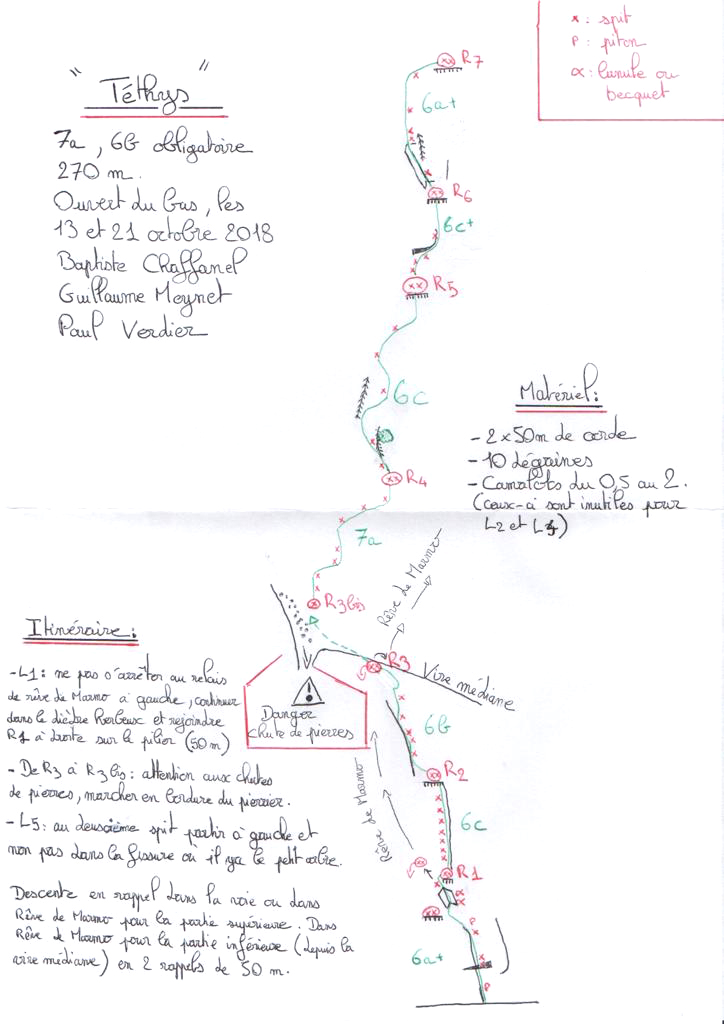 x : spit
P : piton
α : lunule ou
becquet
" Téthys "
7a, 6b obligatoire
270 m.
Ouvert du bas, les
13 et 21 octobre 2018
Baptiste Chaffanel
Guillaume Meynet
Paul Verdier
R7
6a+
R6
6c+
R5
6c
R4
7a
R3bis
Matériel:
- 2 x 50m de corde
- 10 dégaines
- Camalots du 0,5 au 2.
(ceux-ci sont inutiles pour
L2 et L4)
Rêve de Marmo
R3
Vire médiane
Danger
chute de pierres
6b
R2
Rêve de Marmo
6c
R1
P
6a+
P
Itinéraire:
- L1: ne pas s'arrêter au relais
de rêve de Marmo à gauche, continuer
dans le dièdre herbeux et rejoindre
R1 à droite sur le pilier (50 m)
- De R3 à R3bis: attention aux chutes
de pierres, marcher en bordure du pierrier.
- L5: au deuxième spit partir à gauche et
non pas dans la fissure où il y a le petit arbre.
Descente en rappel dans la voie ou dans
Rêve de Marmo pour la partie supérieure. Dans
Rêve de Marmo pour la partie inférieure (depuis la
vire médiane) en 2 rappels de 50 m.